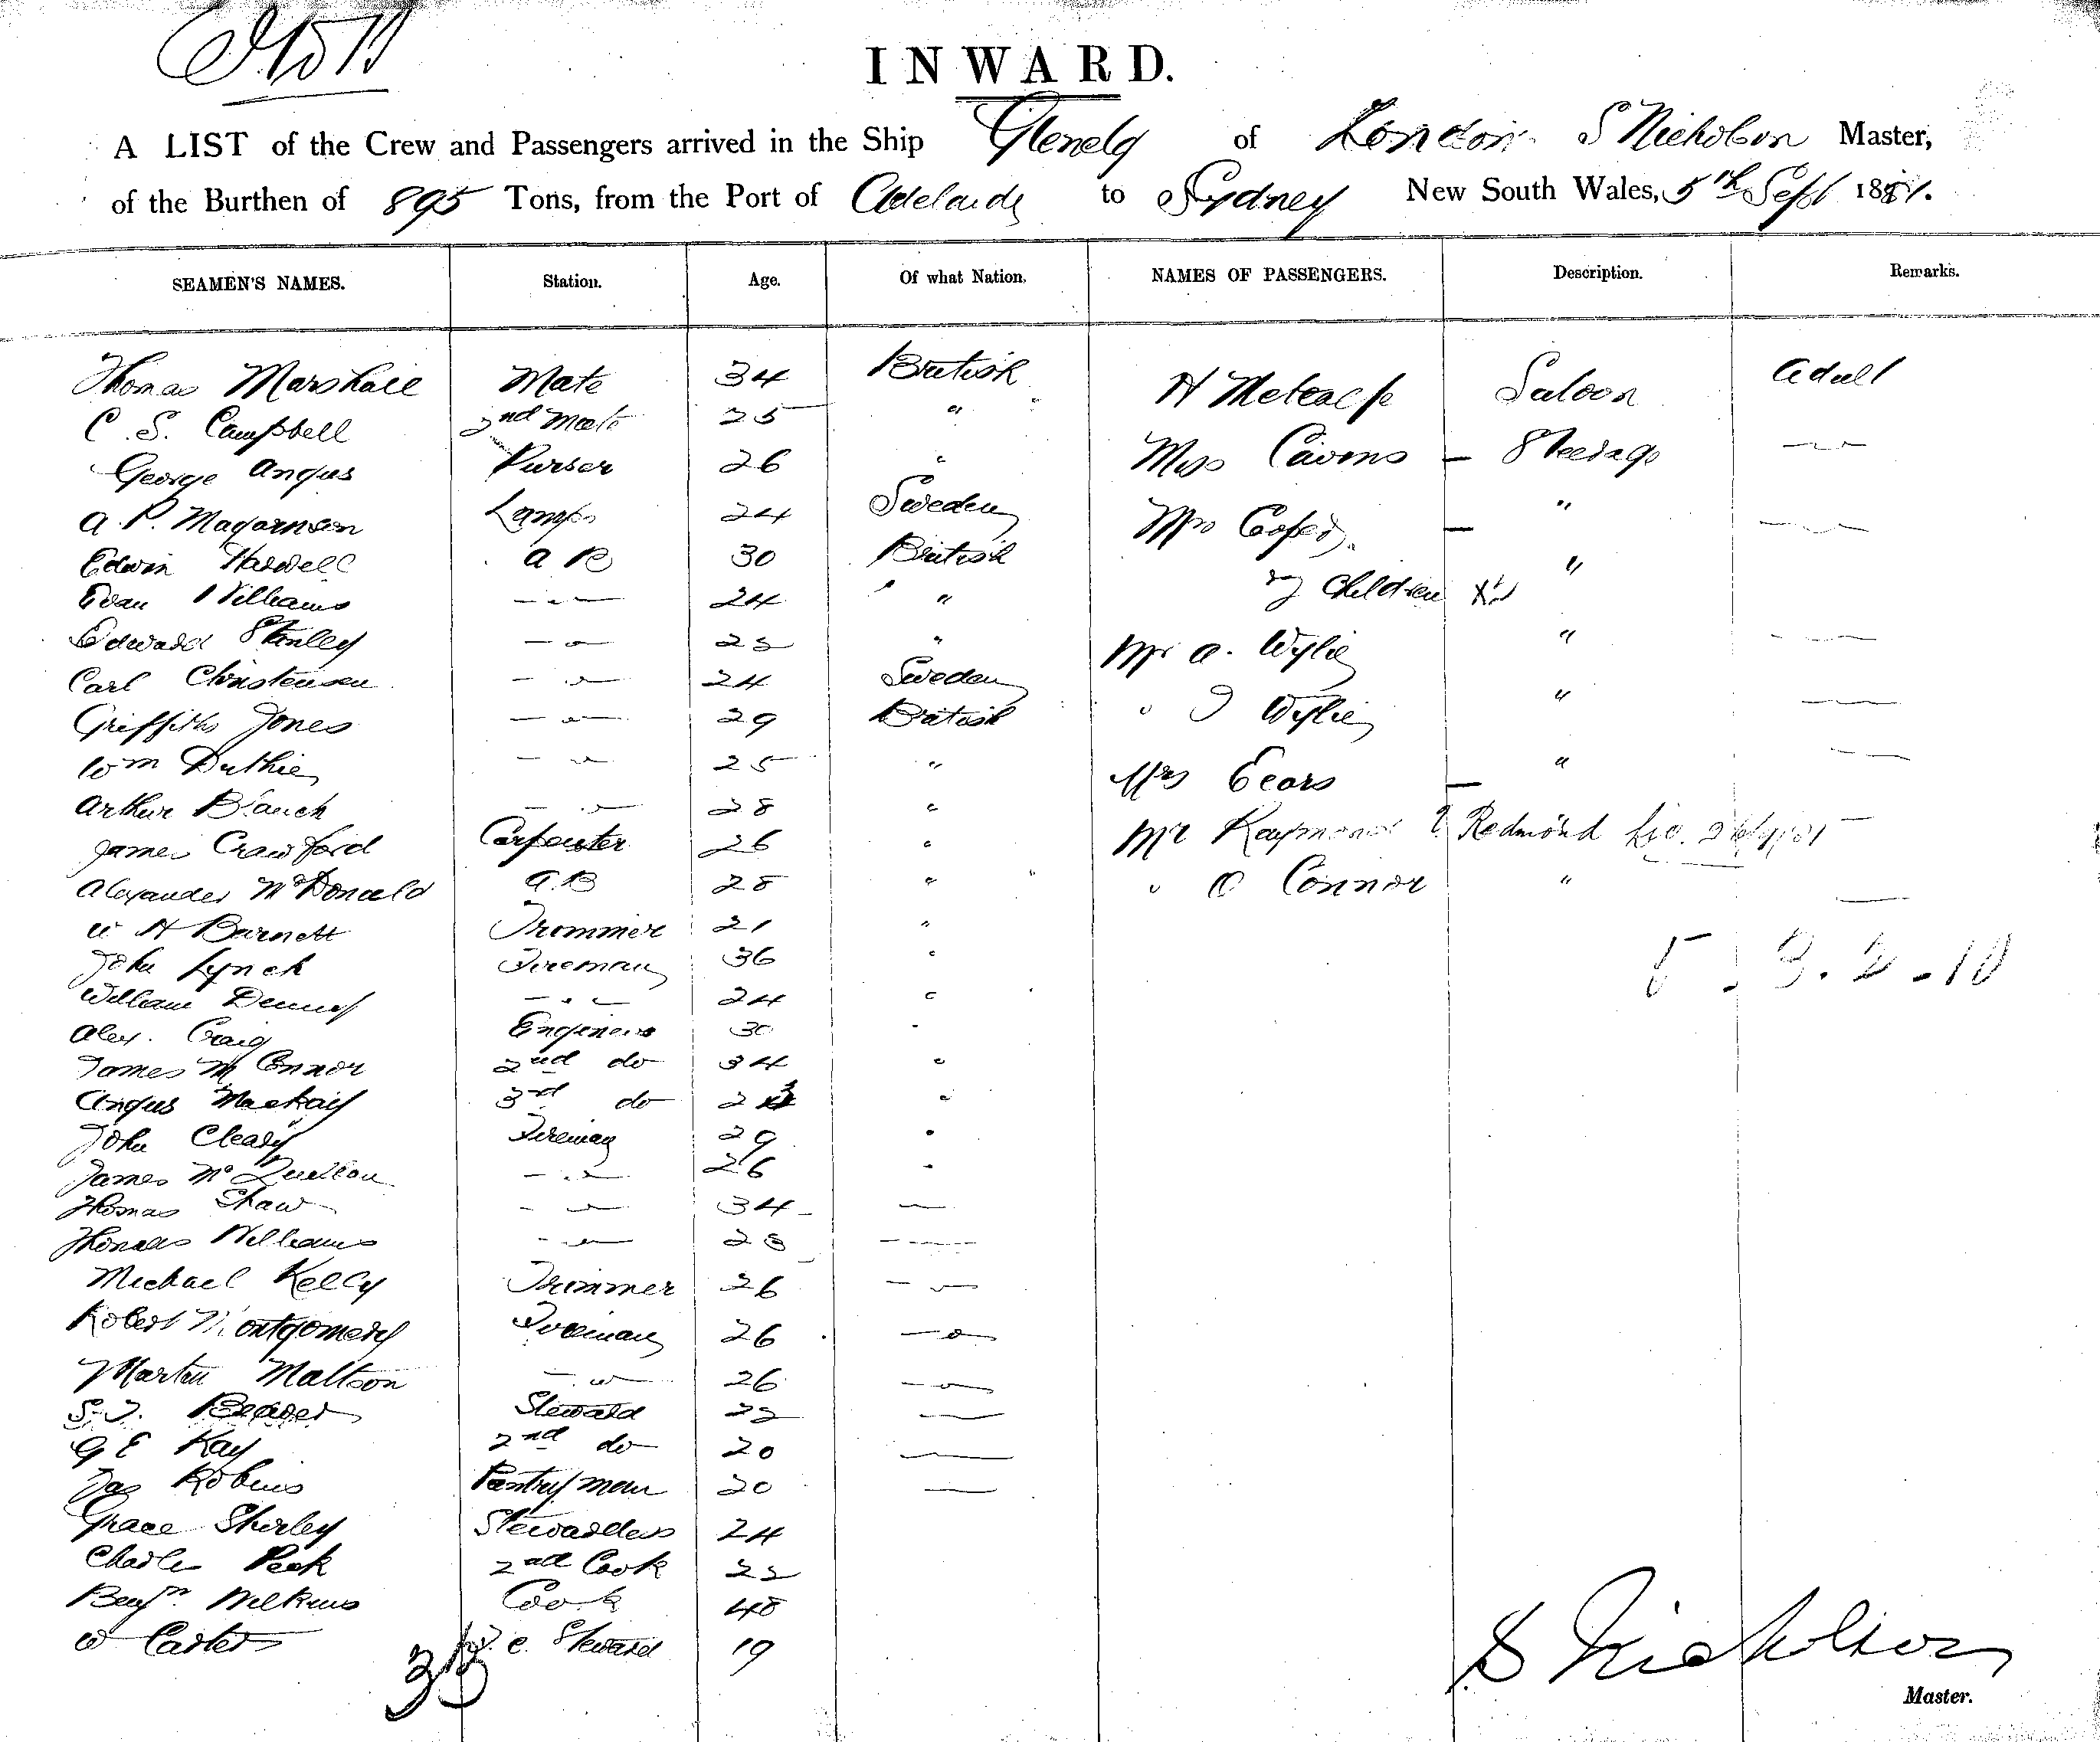 INWARD.
A LIST of the Crew and Passengers arrived in the Ship Glenelg of London S Nicholson Master,
of the Burthen of 895 Tons, from the Port of Adelaide to Sydney New South Wales, 5th Sept 1881.
SEAMEN'S NAMES. Station. Age. Of what Nation. NAMES OF PASSENGERS. Description. Remarks.
Thomas Marshall Mate 34 British H Metcalfe Saloon adult
C. S. Campbell 2nd Mate 25 "
George Angus Purser 26 " Miss Steerage
A. P. Lamps 24 Sweden Mrs "
Edwin A B 30 British
Evan Williams 24 " children "
Edward Stanley 25 " Mr A. Wylie "
Carl Christensen 24 Sweden
Griffiths Jones 29 British " J Wylie "
Wm Duthie 25 " Mrs "
Arthur Blanch 28 "
James Crawford Carpenter 26 " Mr Raymond ? Redmond
Alexander McDonald A.B 28 " " O Connor "
W H Barnett Trimmer 21 "
John Lynch Fireman 36 "
William 24 "
Alex. Craig Engineer 30 "
James M Connor 2nd do 34 "
Angus Mackay 3rd do 23 "
John Cleary Fireman 29 "
James Mc 26 "
Thomas Shaw 34
Thomas Williams 28
Michael Kelly Trimmer 26
Robert Montgomery Fireman 26
Martin Mattson 26
S. J. Steward 22
G E Kay 2nd do 20
Jas Robins Pantryman 20
Grace Shirley Stewardess 24
Charles Peek 2nd Cook 22
Benjn Wilkins Cook 48
W Carter Steward 19
33
S Nicholson
Master.